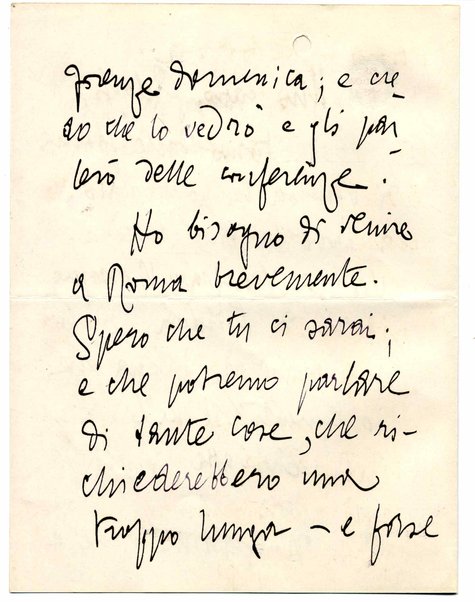 Firenze domenica; e cre
do che lo vedrò e gli par-
lerò delle conferenze.
Ho bisogno di venire
a Roma brevemente.
Spero che tu ci sarai;
e che potremo parlare
di tante cose, che ri-
chiederebbero una
troppo lunga – e forse